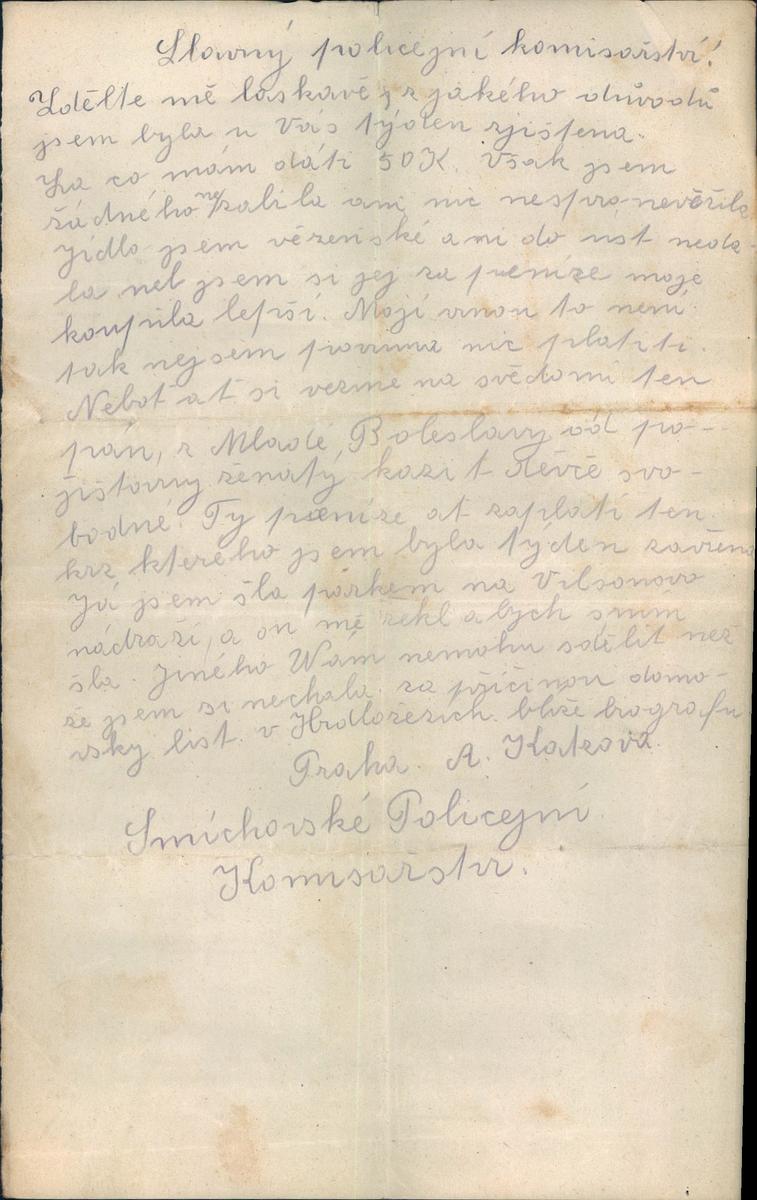 Slavný policejní komisařství!
Zdělte mě laskavě, z jakého důvodů
jsem byla u Vás týden zjištena.
Za co mám dáti 50K. Však jsem
žádného nezabila ani nic nespronevěřila
Jídlo jsem vězenské ani do úst neda-
la neb jsem si jej za peníze moje
koupila lepší. Mojí vinou to není
tak nejsem povinna nic platiti.
Neboť ať si vezme na svědomí ten
pán, z Mladé Boleslavy od po-
jišťovny ženatý, kazit děvče svo-
bodné. Ty peníze ať zaplatí ten.
krz kterého jsem byla týden zavřena
Já jsem šla parkem na Vilsonovo
nádraží, a on mě řekl abych sním
šla. Jiného Wám nemohu sdělit než
že jsem si nechala za příčinou domo-
vsky list. v Hrdlořezích blíže biografu
Praha. A. Katzová.
Smíchovské Policejní
Komisařství.